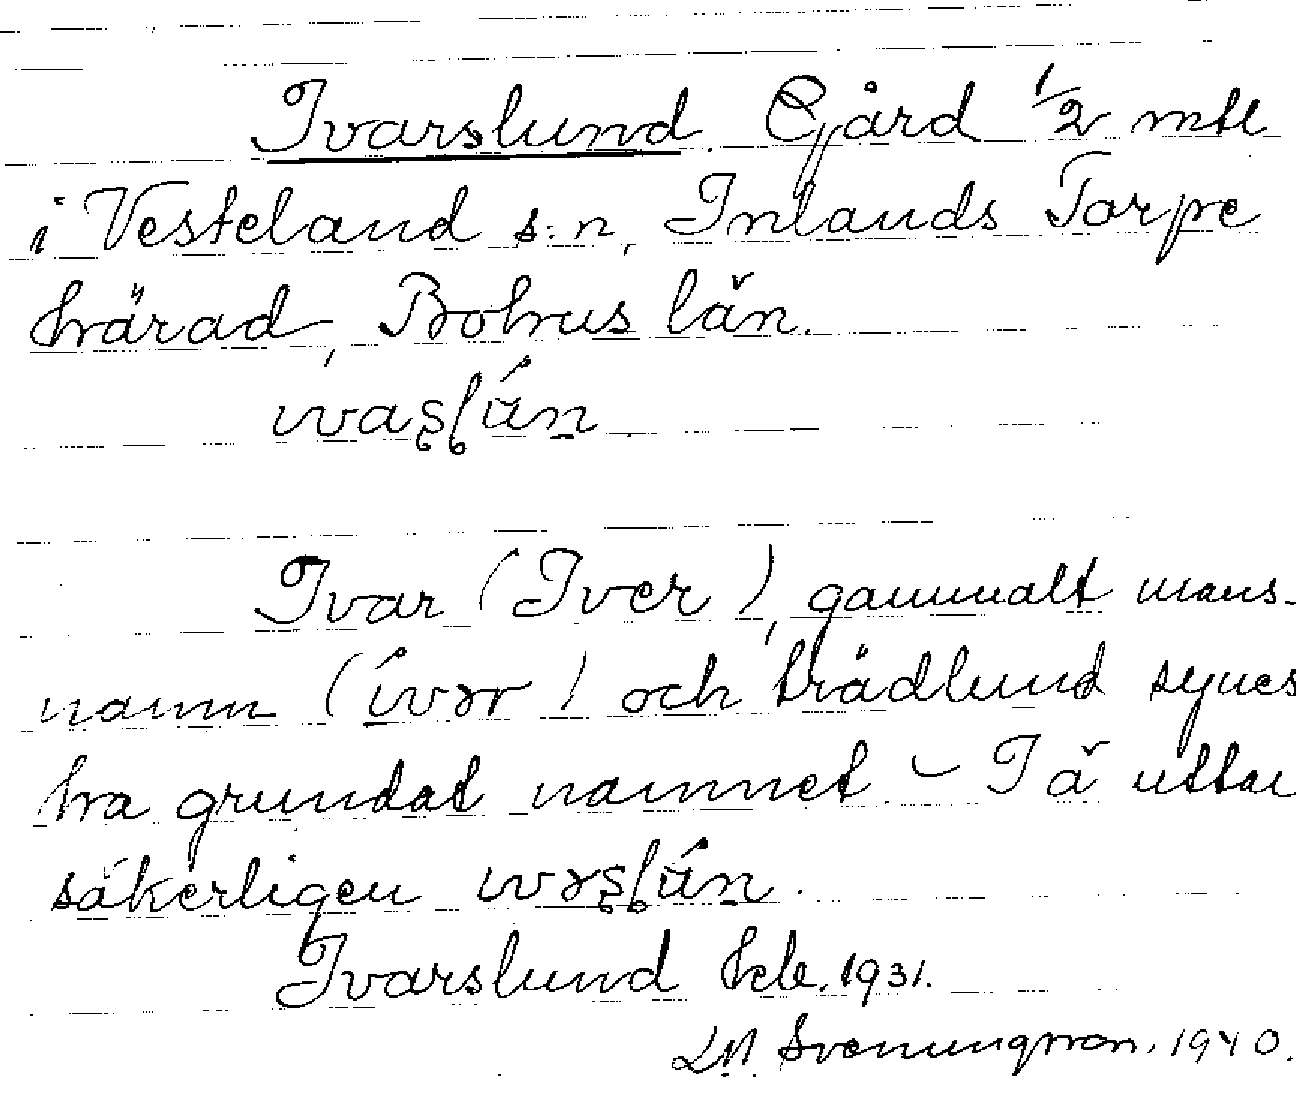 Ivarslund. Gård 1/2 mtl
i Vesteland s:n, Inlands Torpe
härad, Bohus län.
ivaʂɭún
Ivar (Iver), gammalt mans-
namn (ívər) och trädlund synes
ha grundat namnet. – I ä uttal
säkerligen ivəʂɭún.
Ivarslund Jeb. 1931.
LM. Svenungsson. 1940.